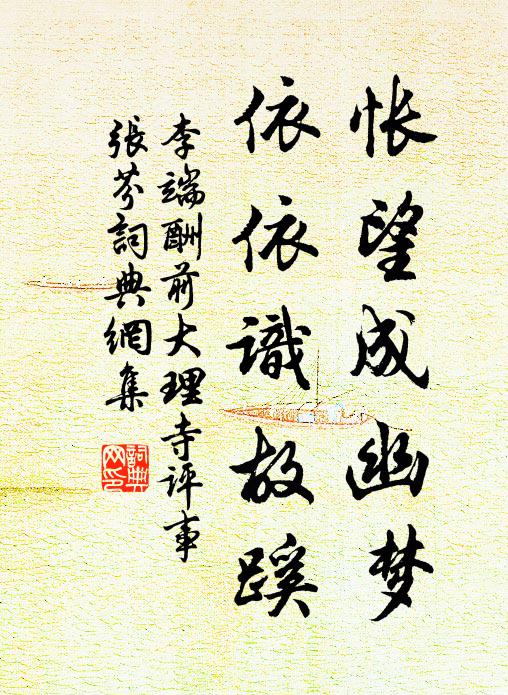 怅望成幽梦
依依識故蹊
李端酬前大理寺评事
張芬詞典網集
詞典
网印